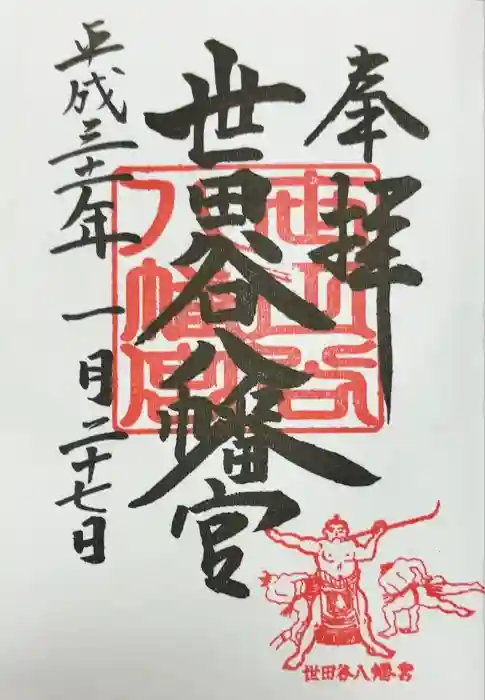 奉拝
世田谷八幡宮
平成三十一年一月二十七日
世田谷八幡宮
世田谷八幡宮